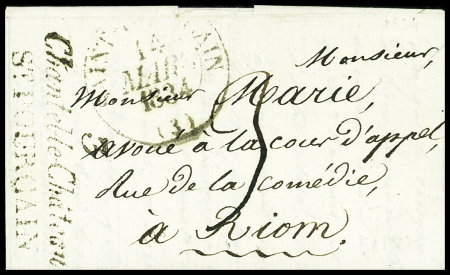 Chantelle-le-Château
ST POURCAIN
14
MAR
1834
(3)
Monsieur,
Monsieur Marie,
avoué à la cour d'appel,
Rue de la comédie,
à Riom.
3